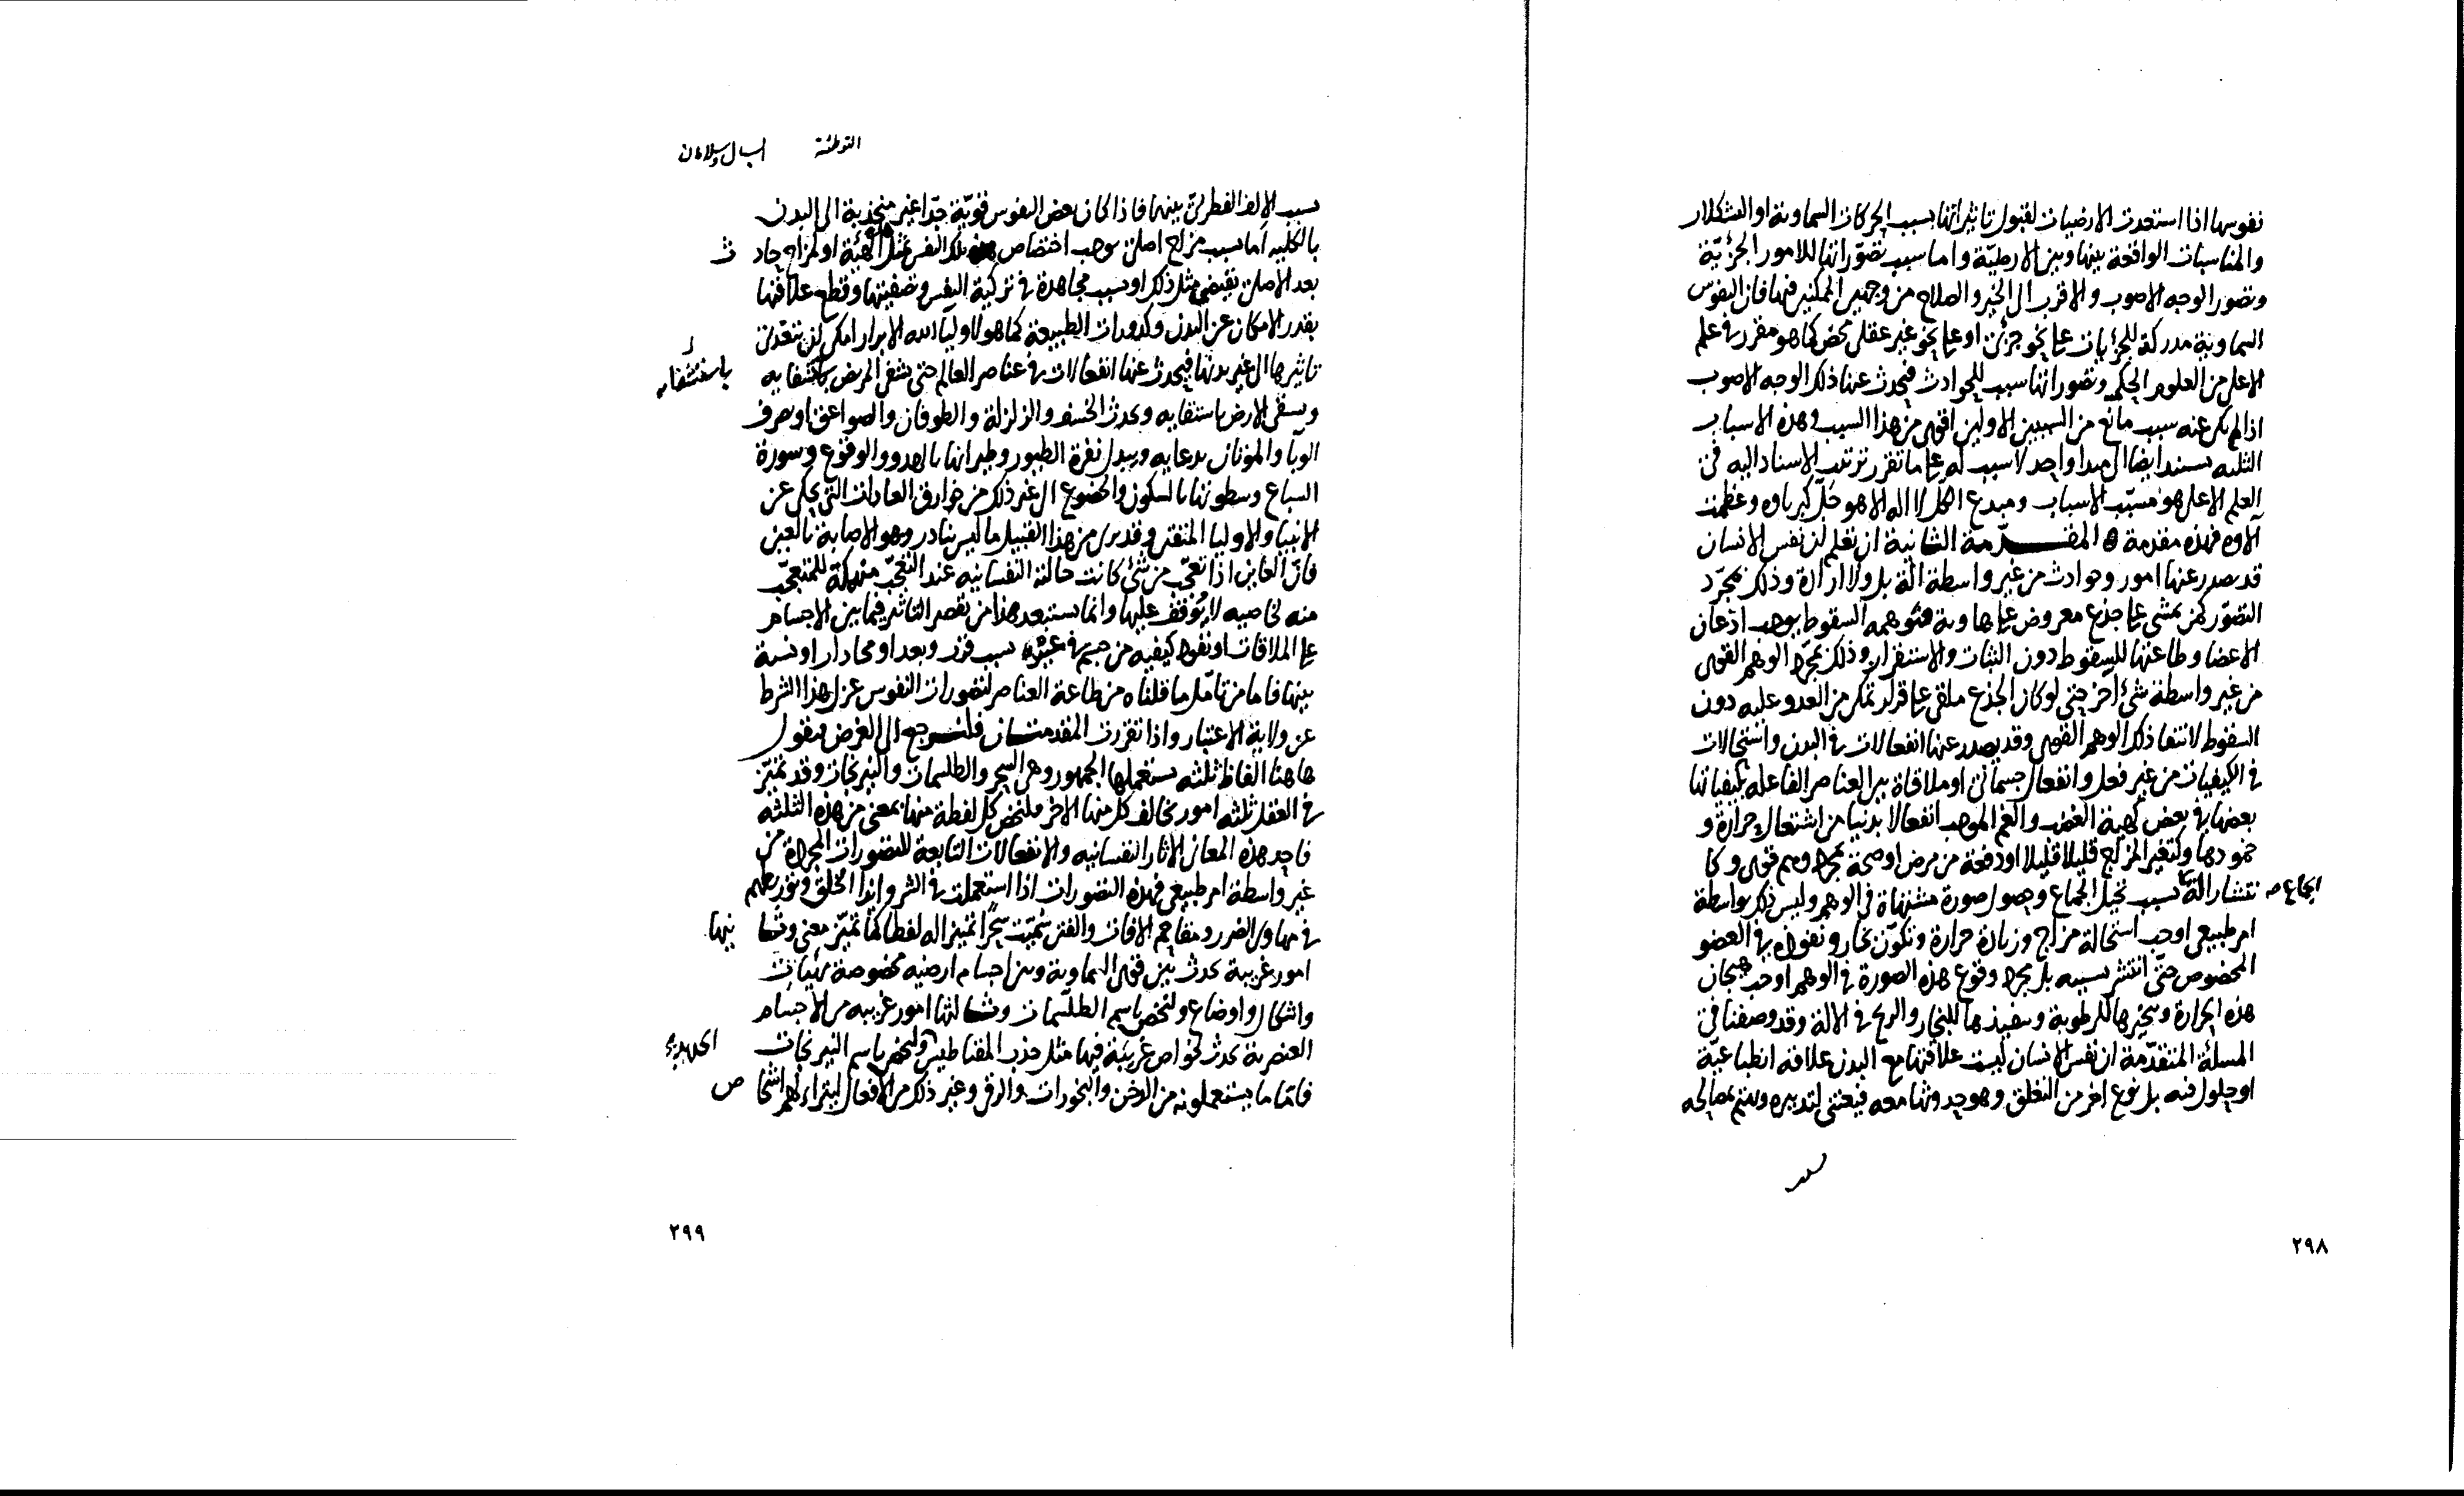 نفوسها اذا استعدت الارضيات لقبول تاثيراتها بسبب الحركات السماوية او التشكلات
والمناسبات الواقعة بينها وبين الارضية واما بسبب تصوّراتها للامور الجزئيّة
وتصور الوجه الاصوب والاقرب الى الخير والصلاح من وجهين الممكنين فيها فان النفوس
السماوية مدركة للجزئيات على نحو جزئى او على نحو غير عقلى محض كما هو مقرر فى علم
الاعلى من العلوم الحكمية وتصوراتها سبب للحوادث فيحدث عنها ذلك الوجه الاصوب
اذا لم يكن عنه سبب مانع من السببين الاولين اقوى من هذا السبب وهذه الاسباب
الثلثه يستند ايضا الى مبدا واحد لا سبب له على ما تقرر ترتب الاسناد اليه فى
العلم الاعلى هو مسبّب الاسباب ومبدع الكل لا اله الا هو جلّ كبرياوه وعظمت
آلاوه فهذه مقدمة ٥ المقدّمة الثانية ان تعلم ان نفس الانسان
قد يصدر عنها امور وحوادث من غير واسطة الة بل ولا ارادة وذلك بمجرّد
التصوّر كمن يمشى على جذع معروض على هاوية فتوهمه السقوط يوجب اذعان
الاعضا وطاعتها للسقوط دون الثبات والاستقرار وذلك بمجرد الوهم القوى
من غير واسطة شئ آخر حتى لو كان الجذع ملقى على قرار تمكن من العدو عليه دون
السقوط لانتفا ذلك الوهم القوى وقد يصدر عنها انفعالات فى البدن واستحالات
فى الكيفيات من غير فعل وانفعال جسمانى او ملاقاة بين العناصر الفاعله بكيفياتها
بعضها فى بعض كهية الغضب والغم الموجب انفعالا بدنيا من اشتعال حرارة و
خمودها وكتغير المزاج قليلا قليلا او دفعة من مرض او صحة بمجرد وهم قوى وكا
نتشار الة بسبب تخيل الجماع وحصول صورة مشتهاة فى الوهم وليس ذلك بواسطة
الجماع
امر طبيعى اوجب استحالة مزاج وزيادة حرارة وتكوّن بخار ونفوذه فى العضو
المخصوص حتى انتشر بسببه بل مجرد وقوع هذه الصورة فى الوهم اوجب هيجان
هذه الحرارة وتبخيرها للرطوبة وتنفيذها للبخار والريح فى الالة وقد وصفنا فى
المسلة المتقدّمة ان نفس الانسان ليست علاقتها مع البدن علاقه انطباعيّة
او حلول فيه بل نوع اخر من التعلق وهو حدوثها معه فتعتنى لتدبيره وتهتم بمصالحه
٢٩٨
التوطئة ابسال وسلامان
بسبب الالف الفطرى بينهما فاذا كان بعض النفوس قويّة جدّا غير منجذبة الى البدن
بالكلية اما بسبب مزاج اصلى يوجب اختصاص تلك النفس بمثل الهيئة او لمزاج حادث
بعد الاصلى يقتضى مثل ذلك او بسبب مجاهدة فى تزكية النفس وتصفيتها وقطع علاقتها
بقدر الامكان عن البدن وكدورات الطبيعة كما هو لاولياء الله الابرار امكن ان يتعدى
تاثيرها الى غير بدنها فيحدث عنها انفعالات فى عناصر العالم حتى يشفى المريض باستشفايه
باستشفايه
ويسقى الارض باستسقايه ويحدث الخسف والزلزلة والطوفان والصواعق او يصرف
الوبا والموتان بدعايه ويبدل نفرة الطيور وطيرانها بالهدو والوقوع وسورة
السباع وسطوتها بالسكون والخضوع الى غير ذلك من خوارق العادات التى يحكى عن
الانبيا والاوليا المتقين وقد يرى من هذا القبيل ما ليس بنادر وهو الاصابة بالعين
فانّ العاين اذا تعجّب من شئ كانت حالته النفسانيه عند التعجّب منهكة للمتعجّب
منه لخاصيه لا يُوقف عليها وانما يستبعد هذا من يقصر التاثير فيما بين الاجسام
على الملاقات او نفوذ كيفيه من جسم فى غيره بسبب قرب وبعد او محاذاة او نسبة
بينها فاما من تامّل ما قلناه من طاعة العناصر لتصورات النفوس عزل هذا الشرط
عن ولاية الاعتبار واذا تقررت المقدمتان فلنرجع الى الغرض فنقول
ها هنا الفاظ ثلثه يستعملها الجمهور وهى السحر والطلسمات والنيرنجات وقد تميّز
فى العقل ثلثه امور يخالف كل منها الاخر فلنخص كل لفظة منها بمعنى من هذه الثلثة
فاحد هذه المعانى الاثار النفسانيه والانفعالات التابعة للتصورات المجردة من
غير واسطة امر طبيعى فهذه التصورات اذا استعملت فى الشر وايذا الخلق وتوريطهم
فى مهاوى الضرر ومقاحم الافات والفتن سُمّيت سِحْرًا تمييزا له لفظا كما تميّز معنى وثانيها
امور غريبة تحدث بين قوى السماوية وبين اجسام ارضيه مخصوصة بهيئات
واشكال واوضاع ولنخص باسم الطلّسمات وثالثها امور غريبه من الاجسام
العنصرية تحدث لخواص غريبة فيها مثل جذب المقناطيس ولنخص باسم النيرنجات
الحديد
فامّا ما يستعملونه من الدخن والبخورات والرقى وغير ذلك من الافعال ليتراءى لهم اشخاص
٢٩٩